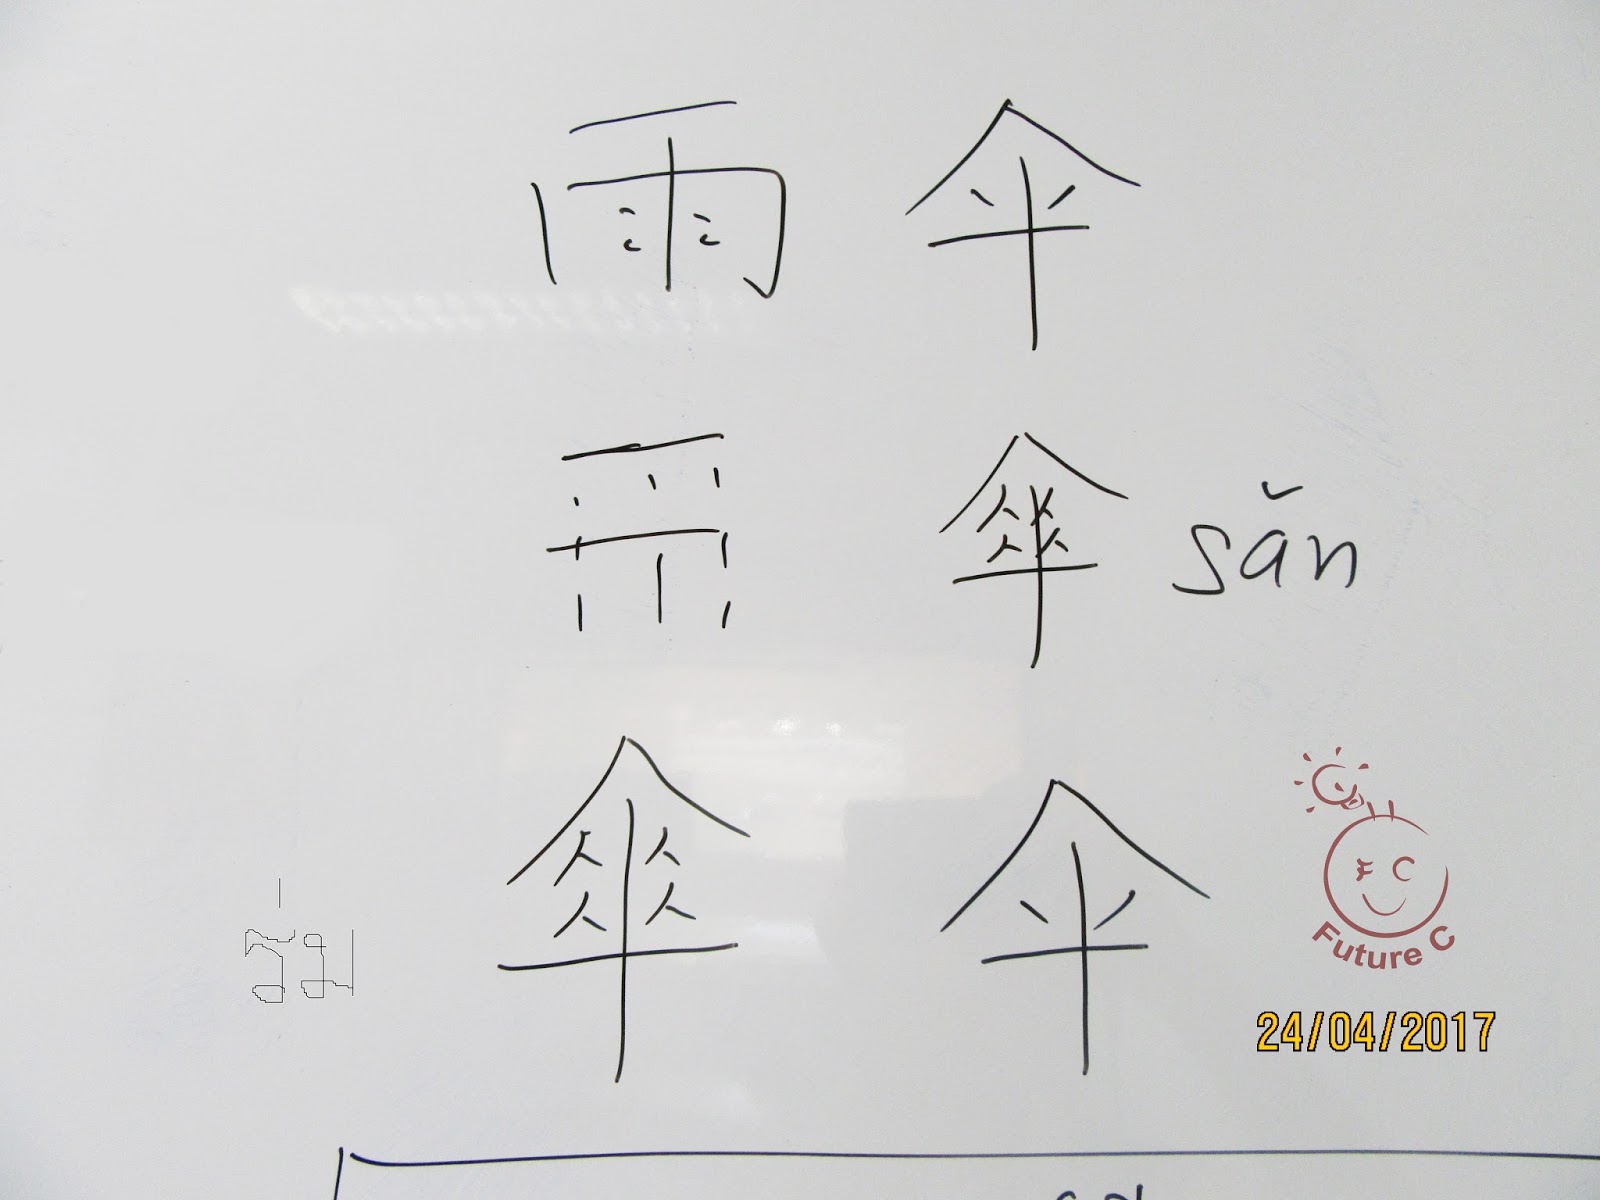 雨 伞
傘 sǎn
傘 伞
ร่ม
Future C
24/04/2017